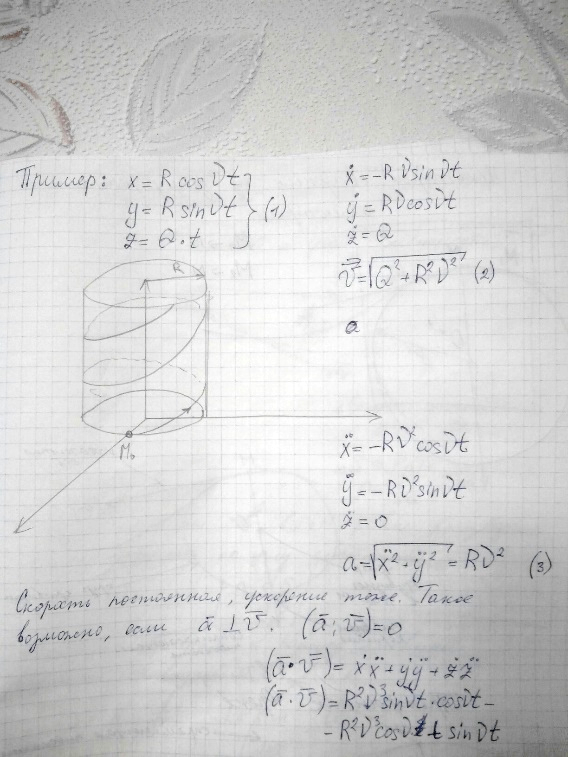 Пример: x = R cos νt
y = R sin νt } (1)
z = Q · t
ẋ = -Rν sin νt
ẏ = Rν cos νt
ż = Q
v̄ = √(Q² + R²ν²) (2)
R
a
M₀
ẍ = -Rν² cos νt
ÿ = -Rν² sin νt
z̈ = 0
a = √(ẍ² + ÿ²) = Rν² (3)
Скорость постоянная, ускорение тоже. Такое
возможно, если ā ⊥ v̄. (ā; v̄) = 0
(ā · v̄) = ẋẍ + ẏÿ + żz̈
(ā · v̄) = R²ν³ sin νt · cos νt -
- R²ν³ cos νt sin νt